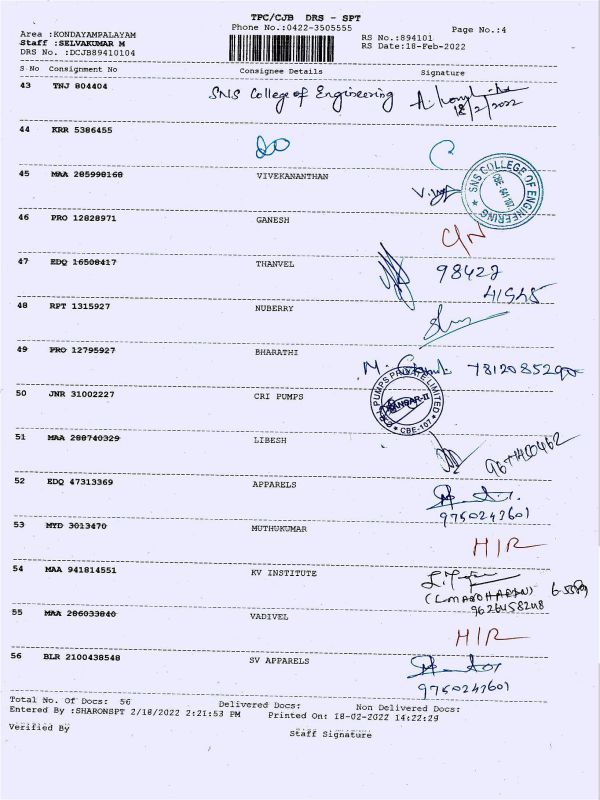 TPC/CJB DRS - SPT
Phone No.:0422-3505555
Page No.:4
Area :KONDAYAMPALAYAM
Staff :SELVAKUMAR M
DRS No. :DCJB89410104
RS No.:894101
RS Date:18-Feb-2022
S No Consignment No Consignee Details Signature
43 TNJ 804404 SNS College of Engineering
18/2/2022
44 KRR 5386455
45 MAA 285998168 VIVEKANANTHAN
SNS COLLEGE OF ENGINEERING
CBE 641 107
46 PRO 12828971 GANESH
47 EDQ 16508417 THANVEL
98422
41545
48 RPT 1315927 NUBERRY
49 PRO 12795927 BHARATHI
50 JNR 31002227 CRI PUMPS
PUMPS PRIVATE LIMITED
CBE-107
51 MAA 288740329 LIBESH
52 EDQ 47313369 APPARELS
9750247601
53 MYD 3013470 MUTHUKUMAR
H/R
54 MAA 941814551 KV INSTITUTE
(L MANOHARAN)
9626458248
55 MAA 286033840 VADIVEL
H/R
56 BLR 2100438548 SV APPARELS
9750247601
Total No. Of Docs: 56 Delivered Docs: Non Delivered Docs:
Entered By :SHARONSPT 2/18/2022 2:21:53 PM Printed On: 18-02-2022 14:22:29
Verified By Staff Signature